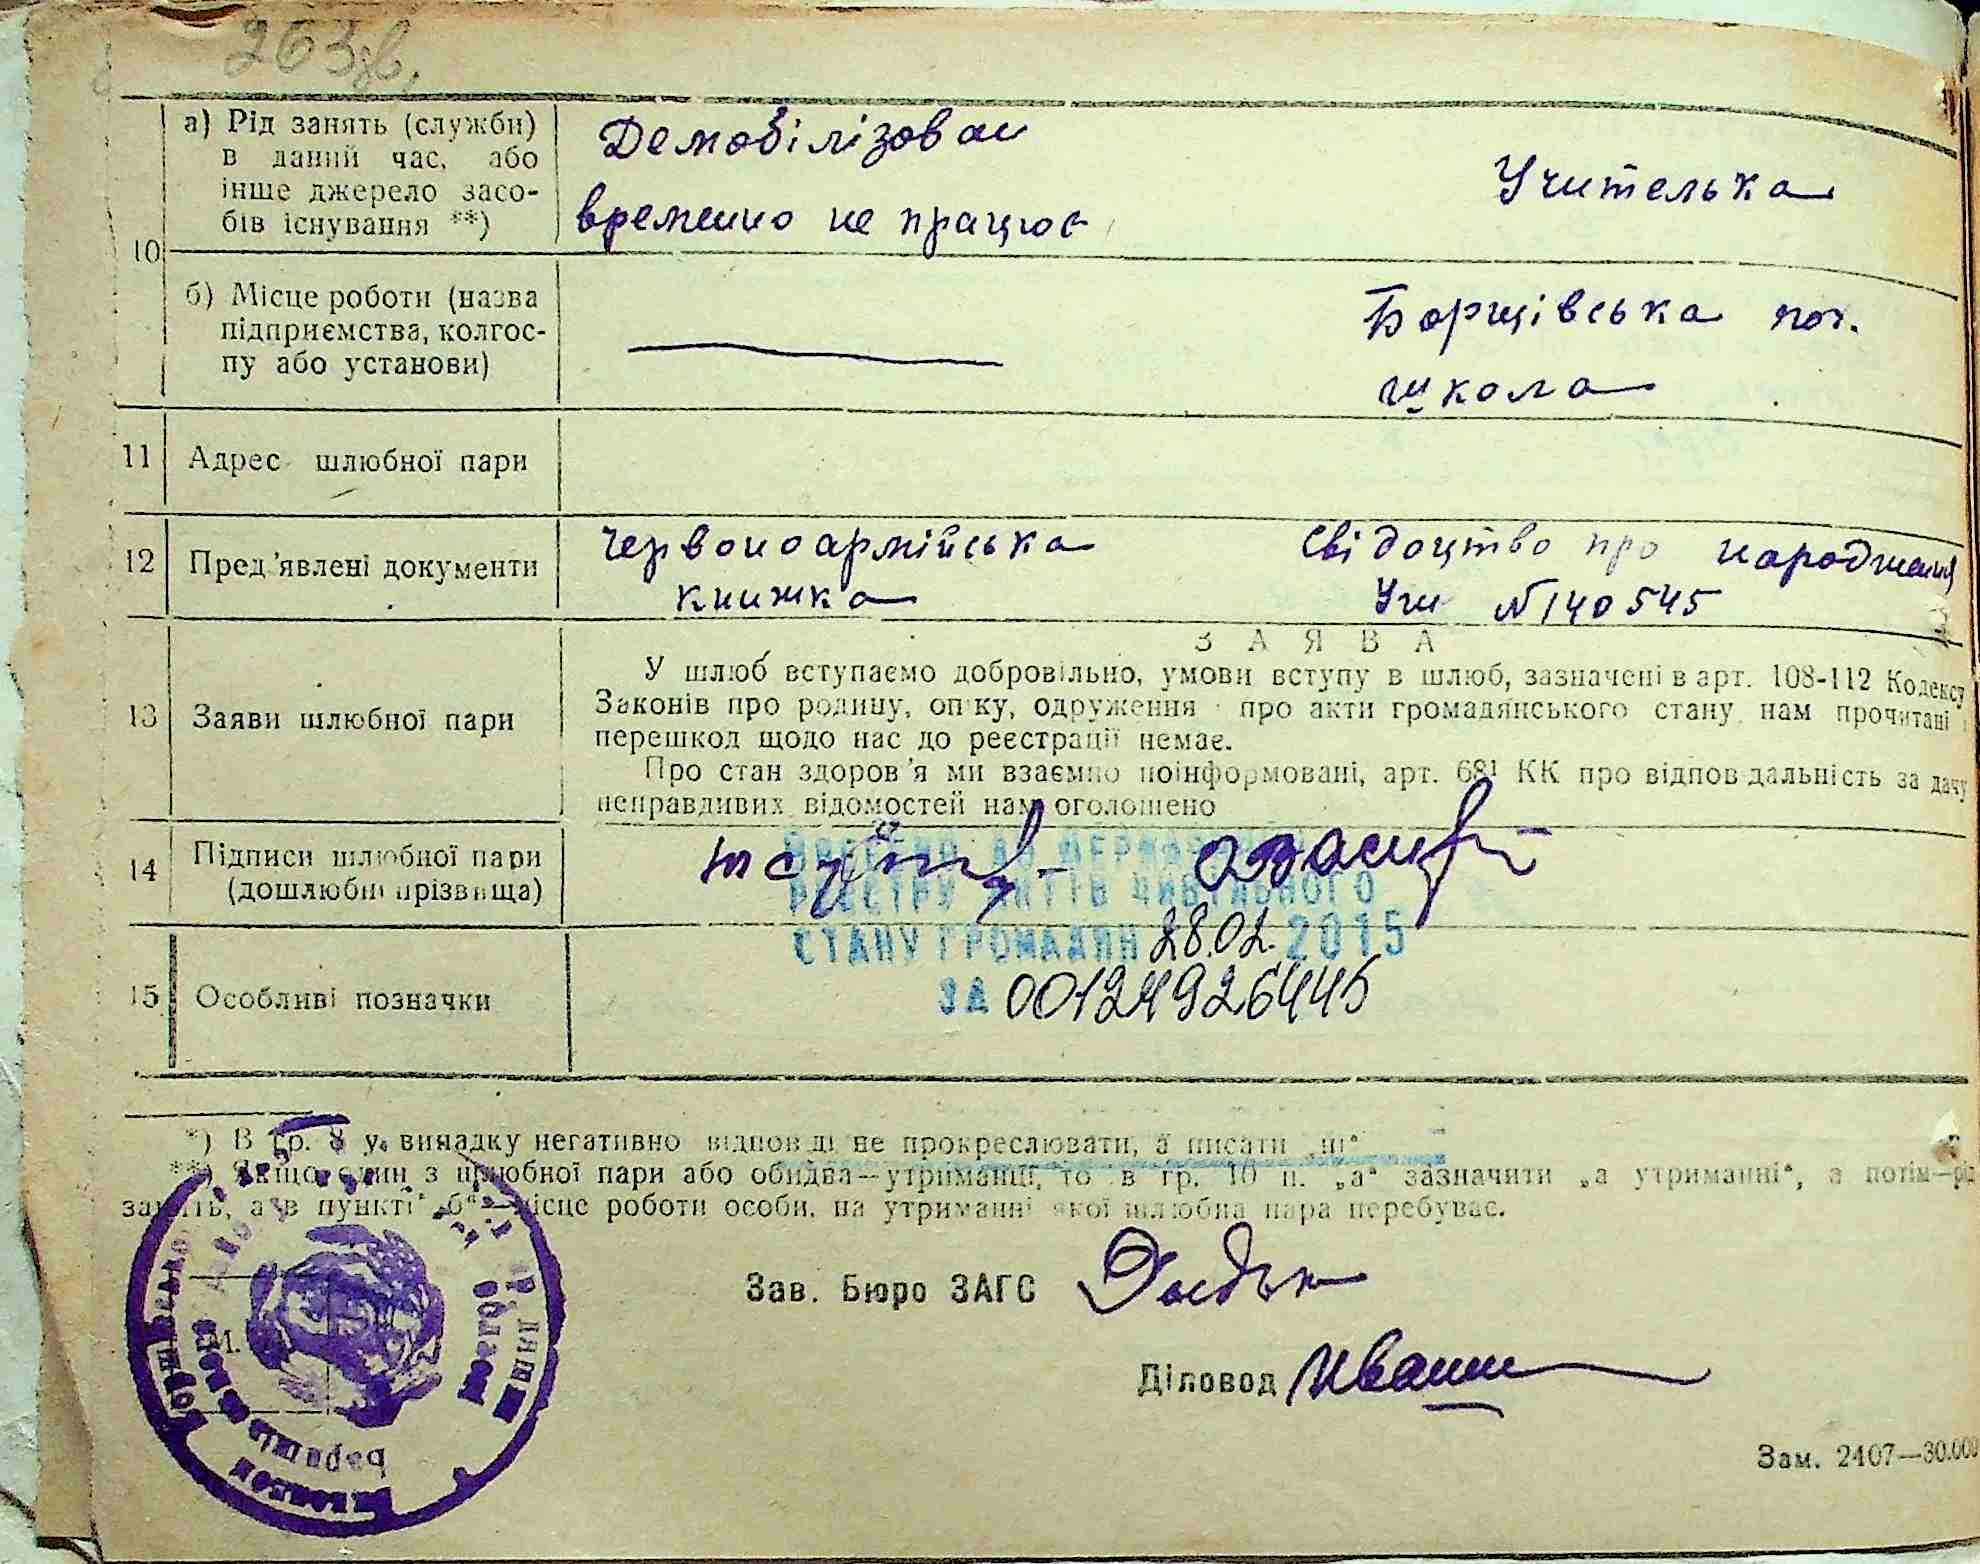 263зв.
а) Рід занять (служби)
в даний час, або
інше джерело засо-
бів існування **)
Демобілізован
временно не працює
Учителька
10
б) Місце роботи (назва
підприємства, колгос-
пу або установи)
Борщівська поч.
школа
11 Адрес шлюбної пари
12 Пред'явлені документи
Червоноармійська
книжка
Свідоцтво про народження
№140545
З А Я В А
13 Заяви шлюбної пари
У шлюб вступаємо добровільно, умови вступу в шлюб, зазначені в арт. 108-112 Кодексу
Законів про родину, опіку, одруження про акти громадянського стану нам прочитані
перешкод щодо нас до реєстрації немає.
Про стан здоров'я ми взаємно поінформовані, арт. 681 КК про відповідальність за дачу
неправдивих відомостей нам оголошено
14 Підписи шлюбної пари
(дошлюбні прізвища)
ВНЕСЕНО ДО ДЕРЖАВНОГО
РЕЄСТРУ АКТІВ ЦИВІЛЬНОГО
СТАНУ ГРОМАДЯН 28.02. 2015
ЗА 001249926445
15 Особливі позначки
*) В гр. 8 у випадку негативно відповіді не прокреслювати, а писати „ні“
**) Якщо один з шлюбної пари або обидва—утриманці, то в гр. 10 п. „а“ зазначити „а утриманні“, а потім—рід
занять, а в пункті „б“—місце роботи особи, на утриманні якої шлюбна пара перебуває.
Зав. Бюро ЗАГС
М.
Діловод
Зам. 2407—30.000